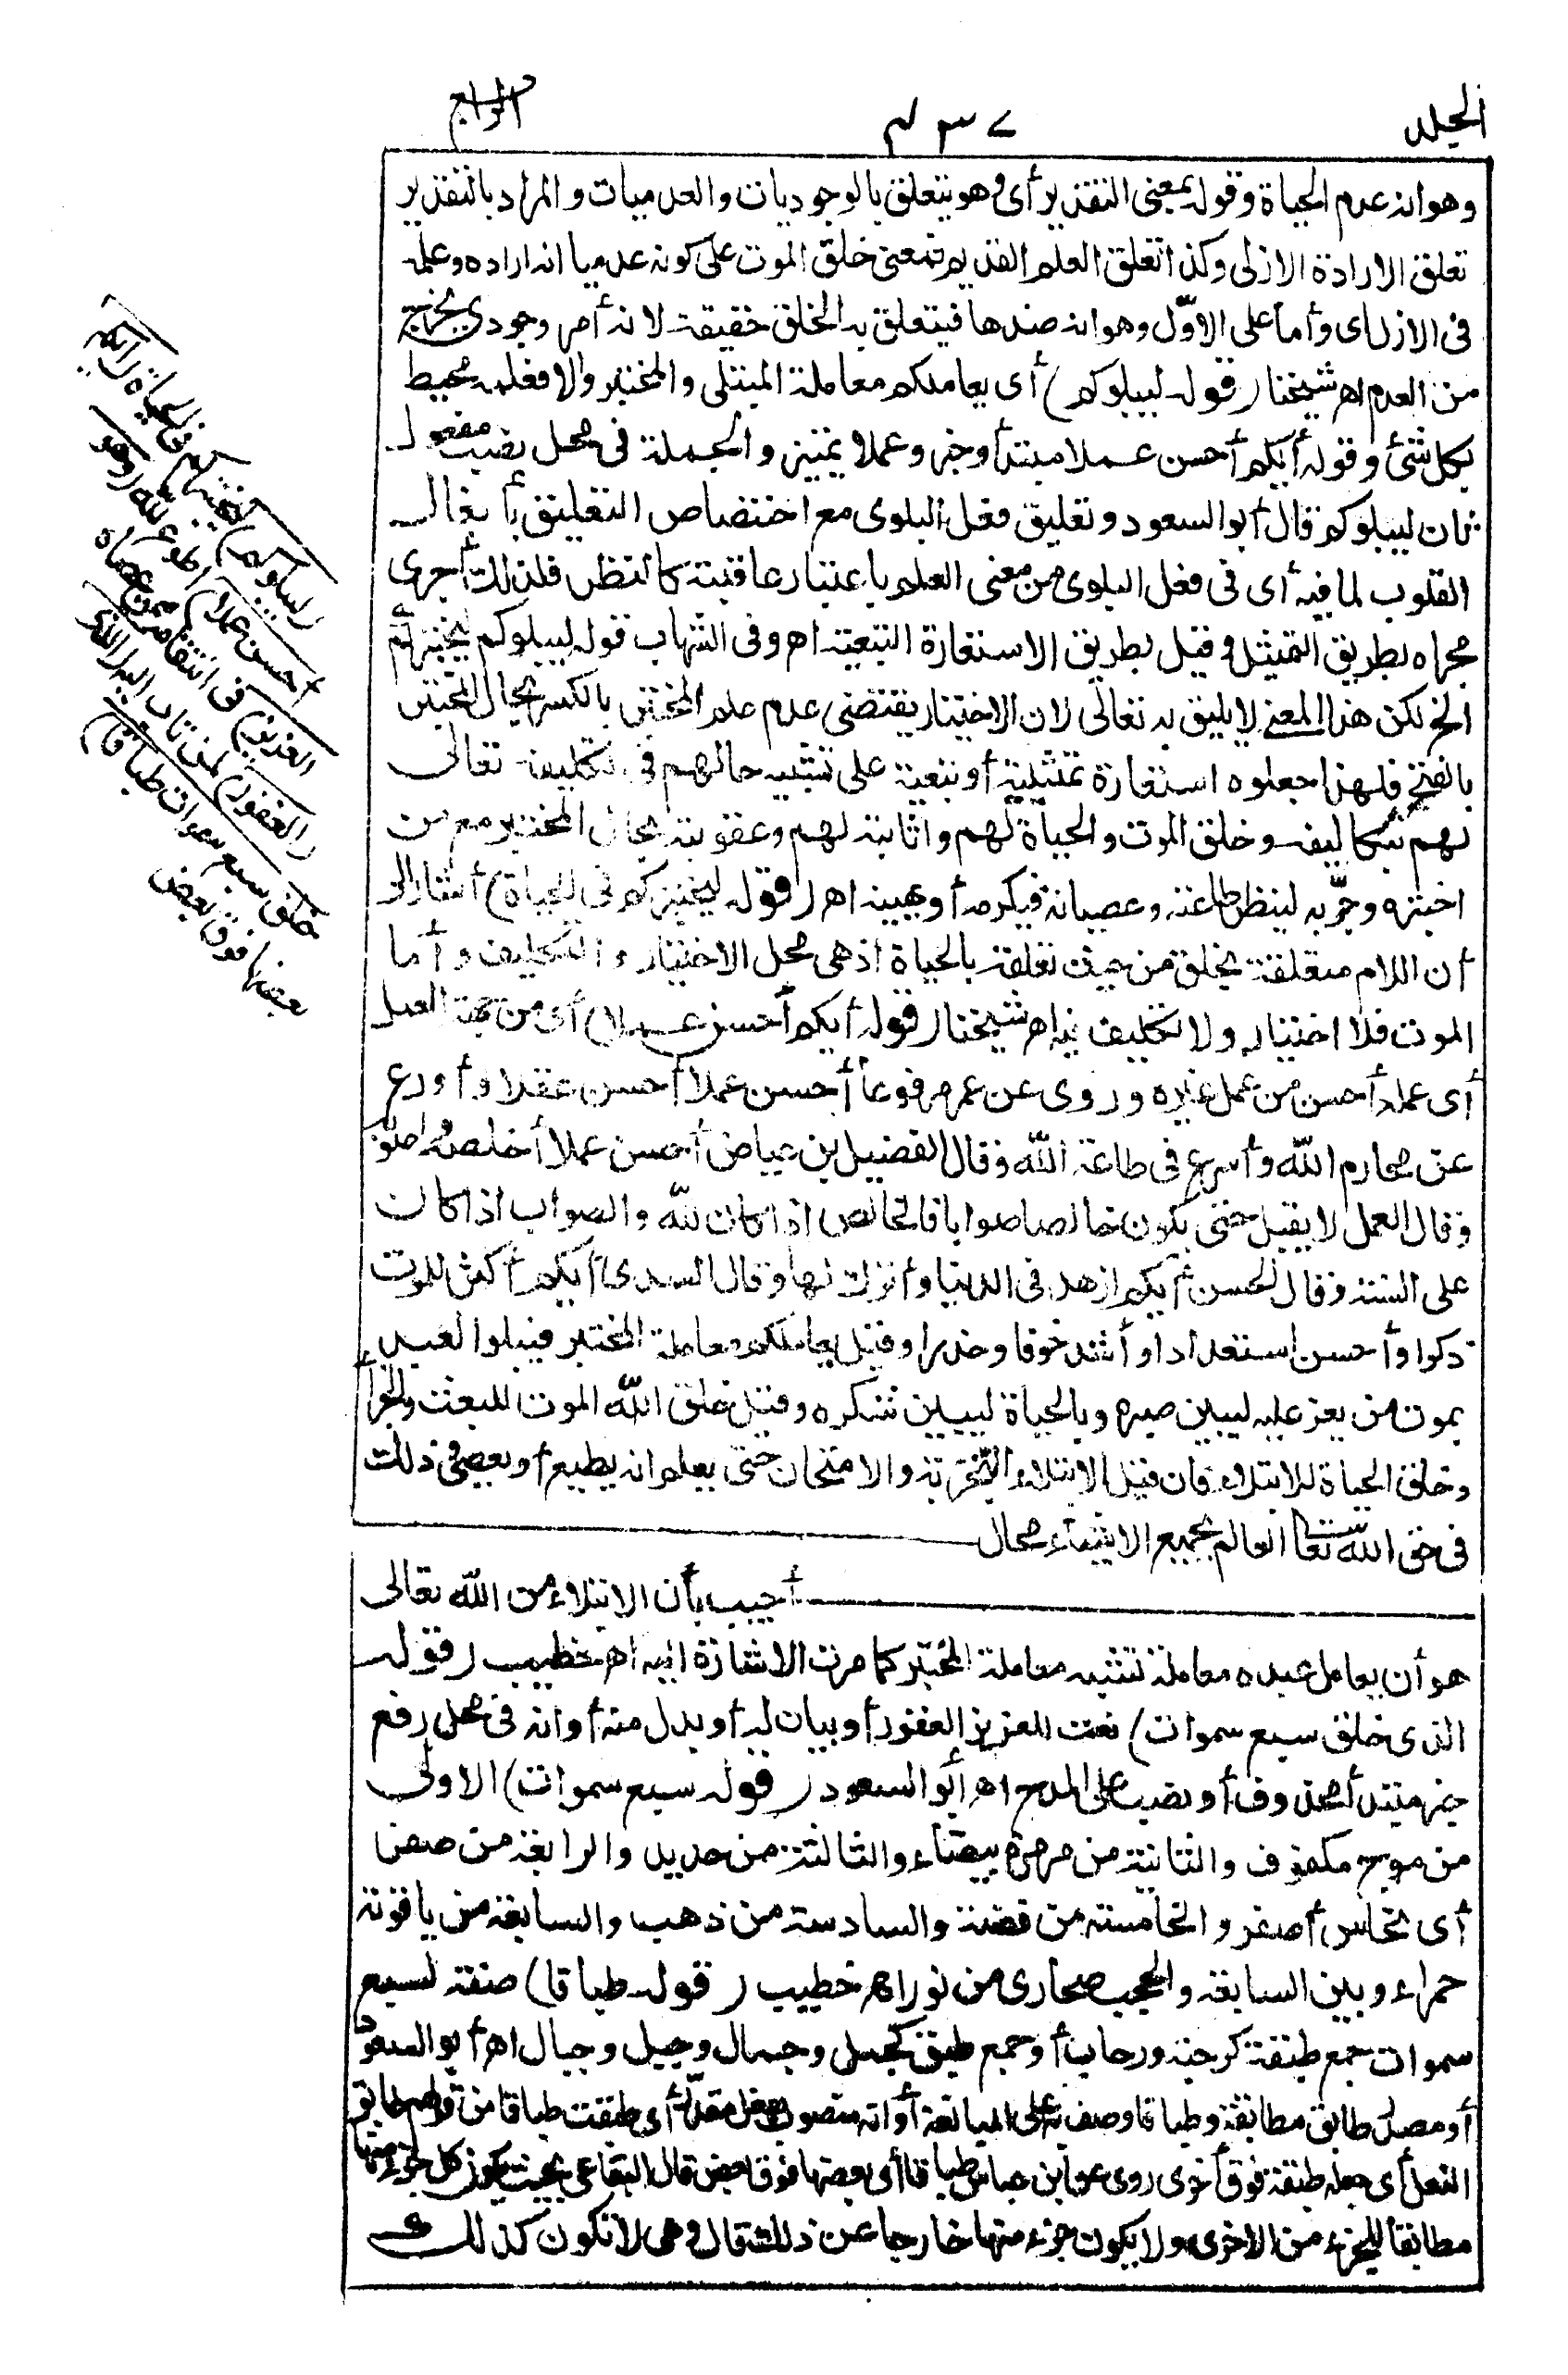 الجلد
الرابع
وهو انه عدم الحياة وقوله بمعنى التقدير أى وهو يتعلق بالوجوديات والعدميات والمراد بالتقدير
تعلق الارادة الازلى وكذا تعلق العلم القديم فمعنى خلق الموت على كونه عدميا انه اراده وعلمه
فى الازل اى وأما على الاوّل وهو انه ضدها فيتعلق به الخلق حقيقة لانه أمر وجودى يخرج
من العدم اهـ شيخنا (قوله ليبلوكم) أى يعاملكم معاملة المبتلى والمختبر والا فعلمه محيط
بكل شئ وقوله أيكم أحسن عملا مبتدأ وخبر وعملا تمييز والجملة فى محل نصب مفعول
ثان ليبلوكم قال أبو السعود وتعليق فعل البلوى مع اختصاص التعليق بأفعال
القلوب لما فيه أى فى فعل البلوى من معنى العلم باعتبار عاقبته كالنظر فلذلك أجرى
مجراه بطريق التمثيل وقيل بطريق الاستعارة التبعية اهـ وفى الشهاب قوله ليبلوكم ليختبركم
الخ لكن هذا المعنى لا يليق به تعالى لان الاختبار يقتضى عدم علم المختبر بالكسر بحال المختبر
بالفتح فلهذا جعلوه استعارة تمثيلية أو تبعية على تشبيه حالهم فى تكليفه تعالى
لهم بتكاليفه وخلق الموت والحياة لهم واثابته لهم وعقوبته بحال المختبر مع من
اختبره وجرّبه لينظر طاعته وعصيانه فيكرمه أو يهينه اهـ (قوله ليختبركم فى الحياة) أشار الى
أن اللام متعلقة بخلق من حيث تعلقه بالحياة اذ هى محل الاختبار والتكليف وأما
الموت فلا اختبار ولا تكليف فيه اهـ شيخنا (قوله أيكم أحسن عملا) أى من جهة العمل
أى عمله أحسن من عمل غيره وروى عن عمر مرفوعا أحسن عملا أحسن عقلا وأورع
عن محارم الله وأسرع فى طاعة الله وقال الفضيل بن عياض أحسن عملا أخلصه وأصوبه
وقال العمل لا يقبل حتى يكون خالصا صوابا فالخالص اذا كان لله والصواب اذا كان
على السنة وقال الحسن أيكم ازهد فى الدنيا وأترك لها وقال السدى أيكم أكثر للموت
ذكرا وأحسن استعدادا وأشد خوفا وحذرا وقيل يعاملكم معاملة المختبر فيبلوا العبد
بموت من يعز عليه ليبين صبره وبالحياة ليبين شكره وقيل خلق الله الموت للبعث والجزاء
وخلق الحياة للابتلاء فان قيل الابتلاء التجربة والامتحان حتى يعلم انه يطيع أو يعصى وذلك
فى حق الله تعالى العالم بجميع الاشياء محال
أجيب بأن الابتلاء من الله تعالى
هو أن يعامل عبده معاملة تشبه معاملة المختبر كما مرت الاشارة اليه اهـ خطيب (قوله
الذى خلق سبع سموات) نعت للعزيز الغفور أو بيان له أو بدل منه أو انه فى محل رفع
خبر مبتدأ محذوف أو نصب على المدح اهـ أبو السعود (قوله سبع سموات) الاولى
من موج مكفوف والثانية من مرمرة بيضاء والثالثة من حديد والرابعة من صفر
أى نحاس أصفر والخامسة من فضة والسادسة من ذهب والسابعة من ياقوتة
حمراء وبين السابعة والحجب صحارى من نور اهـ خطيب (قوله طباقا) صفة لسبع
سموات جمع طبقة كرحبة ورحاب أو جمع طبق كجمل وجمال وجبل وجبال اهـ أبو السعود
أو مصدر طابق مطابقة وطباقا وصف به على المبالغة أو انه منصوب بفعل مقدر أى طبقت طباقا من قولهم طابق
النعل أى جعله طبقة فوق أخرى روى عن ابن عباس طباقا أى بعضها فوق بعض قال البقاعى بحيث يكون كل جزء منها
مطابقا للجزء من الاخرى ولا يكون جزء منها خارجا عن ذلك قال وهى لا تكون كذلك
(ليبلوكم) ليختبركم فى الحياة (أيكم
أحسن عملا) أطوع لله (وهو
العزيز) فى انتقامه ممن عصاه
(الغفور) لمن تاب اليه (الذى
خلق سبع سموات طباقا)
بعضها فوق بعض